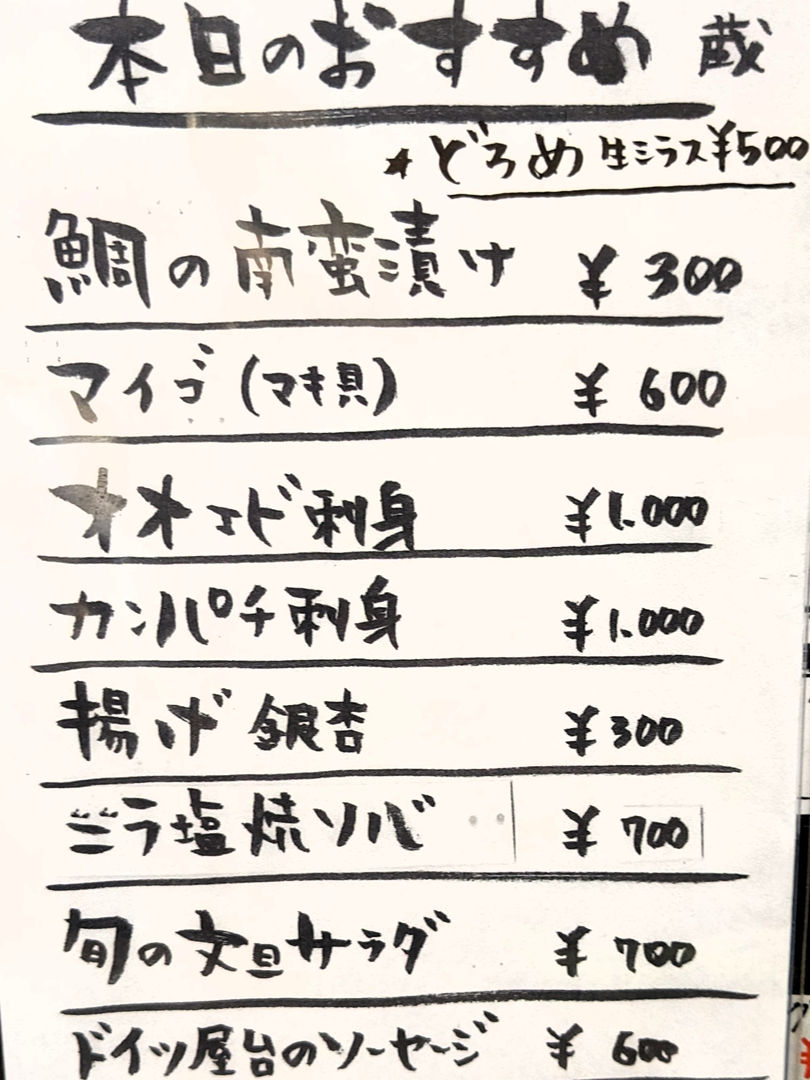 本日のおすすめ 蔵
★どろめ 生シラス ¥500
鯛の南蛮漬け ¥300
マイゴ(マキ貝) ¥600
オオニド刺身 ¥1.000
カンパチ刺身 ¥1.000
揚げ銀杏 ¥300
ニラ塩焼ソバ ¥700
旬の文旦サラダ ¥700
ドイツ屋台のソーセージ ¥600